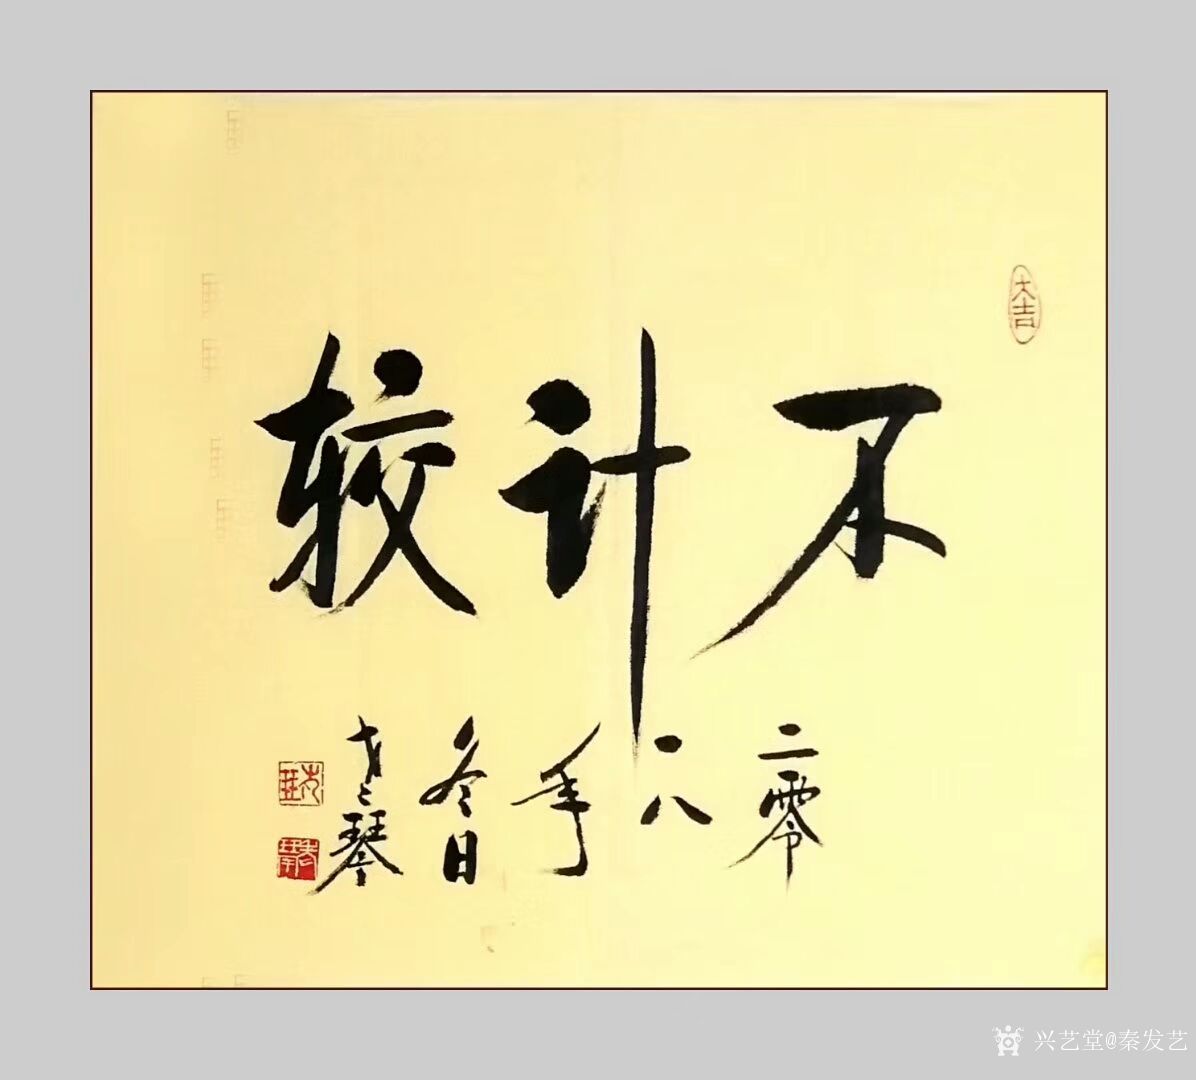 不计较
大吉
二零
一八
年
冬日
兴艺堂@秦发艺